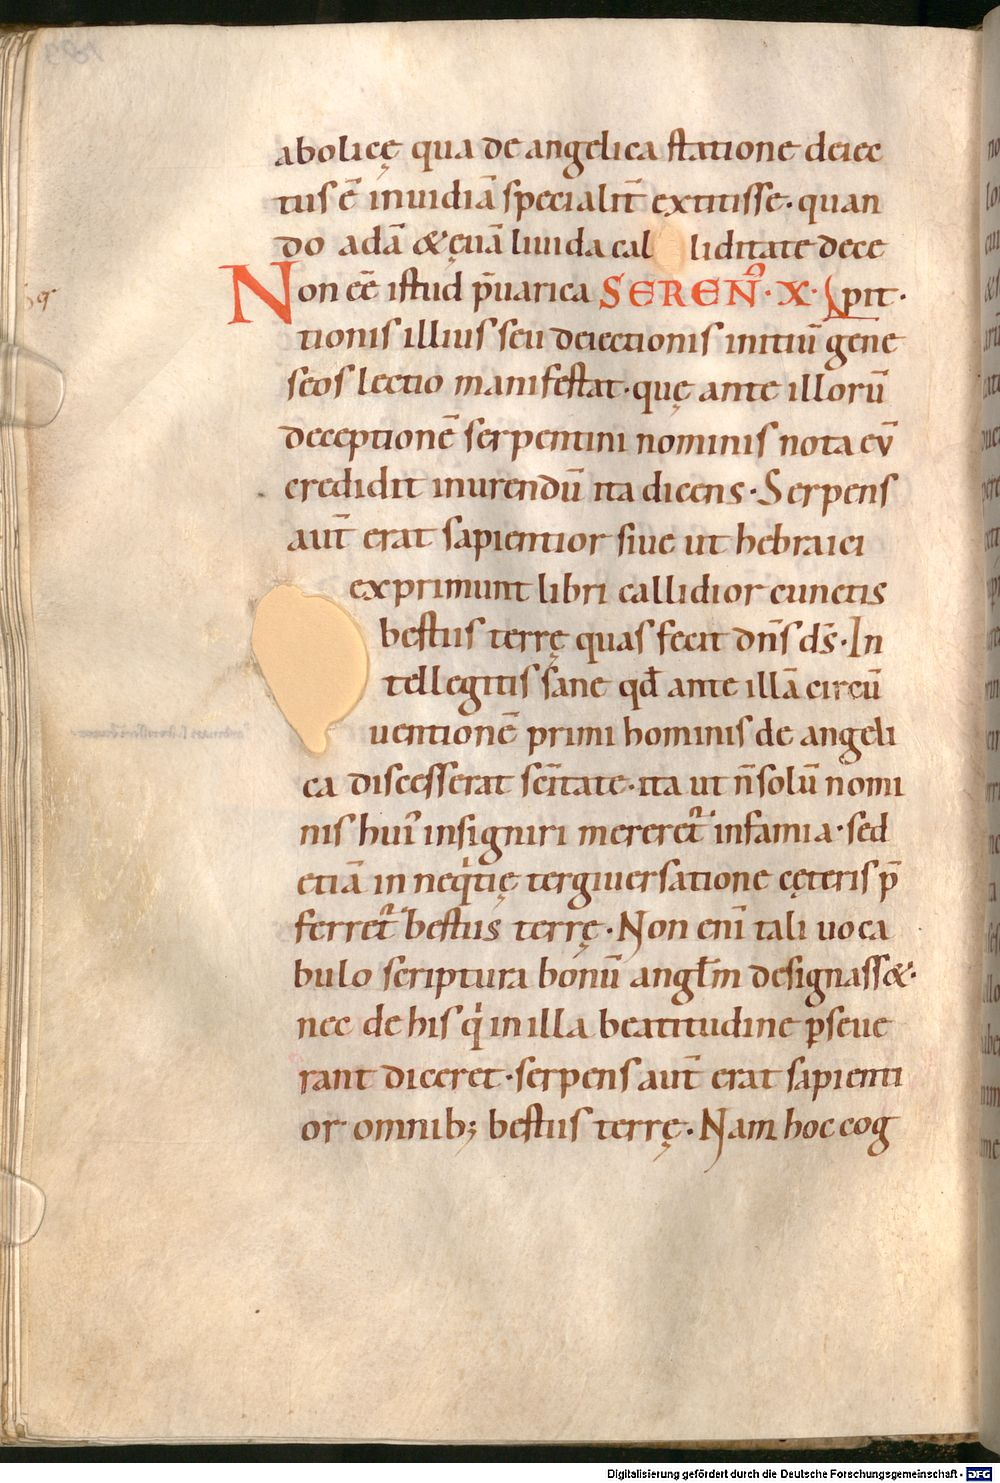 abolicę qua de angelica statione deiec
tus ē inuidiā specialit̄ extitisse· quan
do adā &ęuā liuida cal liditate dece
Non eē istud p̄uarica SEREN̄· X· pit·
tionis illius seu deiectionis initiū gene
seos lectio manifestat· quę ante illorū
deceptionē serpentini nominis nota eū
credidit inurendū ita dicens· Serpens
aut̄ erat sapientior siue ut hebraici
exprimunt libri callidior cunctis
bestiis terrę quas fecit dn̄s ds̄· In
tellegitis sane qđ ante illā circū
uentionē primi hominis de angeli
ca discesserat sc̄itate· ita ut n̄ solū nomi
nis hui᾿ insigniri mereret᾿ infamia· sed
etiā in neq̇tię tergiuersatione cęteris p̄
ferret᾿ bestiis terrę· Non enī tali uoca
bulo scriptura bonū angl̄m designass&·
nec de his q̇ in illa beatitudine p̱seue
rant diceret· serpens aut̄ erat sapienti
or omnib; bestiis terrę· Nam hoc cog
Digitalisierung gefördert durch die Deutsche Forschungsgemeinschaft - DFG